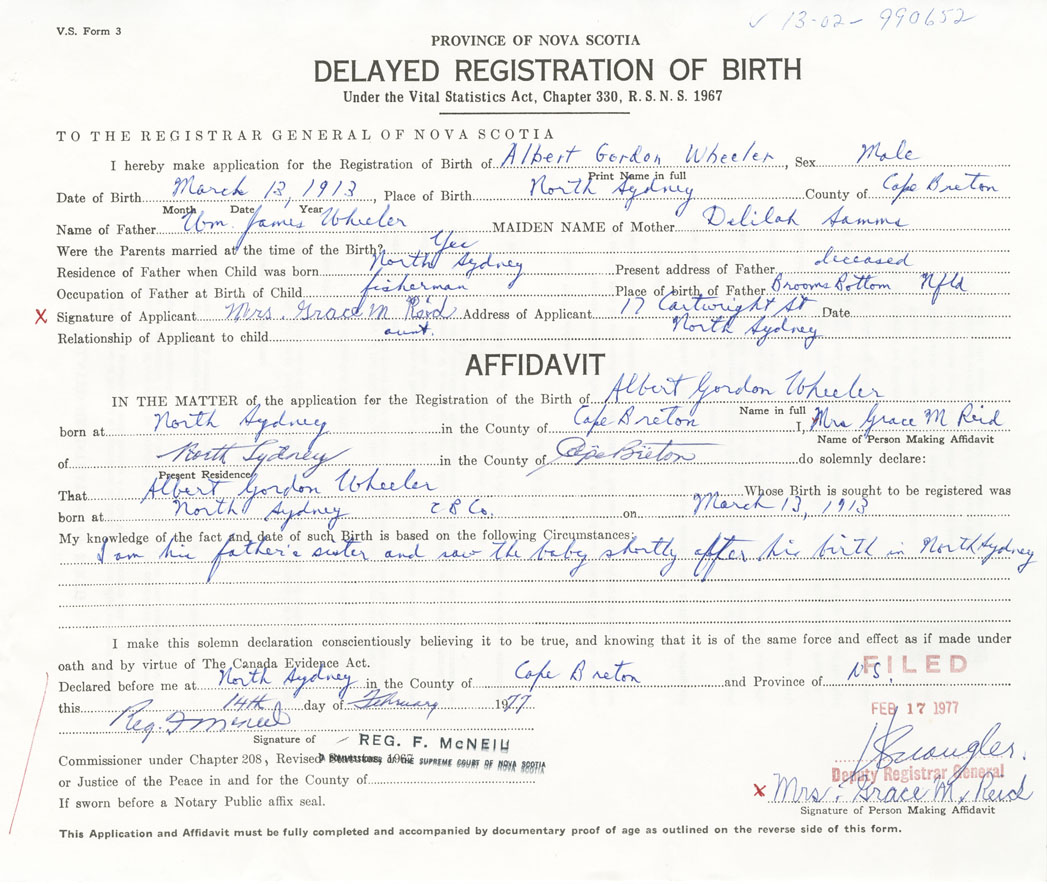 V.S. Form 3
✓ 13-02-990652
PROVINCE OF NOVA SCOTIA
DELAYED REGISTRATION OF BIRTH
Under the Vital Statistics Act, Chapter 330, R.S.N.S. 1967
TO THE REGISTRAR GENERAL OF NOVA SCOTIA
I hereby make application for the Registration of Birth of Albert Gordon Wheeler, Sex Male
Print Name in full
Date of Birth March 13, 1913, Place of Birth North Sydney County of Cape Breton
Month Date Year
Name of Father Wm. James Wheeler MAIDEN NAME of Mother Delilah Samms
Were the Parents married at the time of the Birth? Yes
Residence of Father when Child was born North Sydney Present address of Father deceased
Occupation of Father at Birth of Child fisherman Place of birth of Father Brooms Bottom Nfld
X Signature of Applicant Mrs. Grace M Reid Address of Applicant 17 Cartwright St Date
Relationship of Applicant to child aunt. North Sydney
AFFIDAVIT
IN THE MATTER of the application for the Registration of the Birth of Albert Gordon Wheeler
Name in full
born at North Sydney in the County of Cape Breton I, Mrs Grace M Reid
Name of Person Making Affidavit
of North Sydney in the County of Cape Breton do solemnly declare:
Present Residence
That Albert Gordon Wheeler Whose Birth is sought to be registered was
born at North Sydney C B Co. on March 13, 1913
My knowledge of the fact and date of such Birth is based on the following Circumstances:
I am his father's sister and saw the baby shortly after his birth in North Sydney
I make this solemn declaration conscientiously believing it to be true, and knowing that it is of the same force and effect as if made under
oath and by virtue of The Canada Evidence Act.
FILED
Declared before me at North Sydney in the County of Cape Breton and Province of N.S.
this 14th day of February 1977
FEB 17 1977
Reg. F McNeil
Signature of REG. F. McNEIL
Commissioner under Chapter 208, Revised Statutes, 1967
OF THE SUPREME COURT OF NOVA SCOTIA
Deputy Registrar General
or Justice of the Peace in and for the County of
X Mrs. Grace M. Reid
If sworn before a Notary Public affix seal.
Signature of Person Making Affidavit
This Application and Affidavit must be fully completed and accompanied by documentary proof of age as outlined on the reverse side of this form.